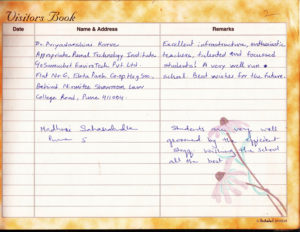 Visitors Book
2
Date Name & Address Remarks
Dr. Priyadarshini Karve Excellent infrastructure, enthusiastic
Appropriate Rural Technology Institute teachers, talented and focussed
Samuchit EnviroTech Pvt Ltd. students! A very well run
Flat No. 6, Ekta Park Co-op Hsg Soc. school. Best wishes for the future.
Behind Nirmitee Showroom Law
College Road, Pune 411004.
Madhuri Sahasrabudhe Students are very well
Pune groomed by the efficient
staff. wishing the school
all the best